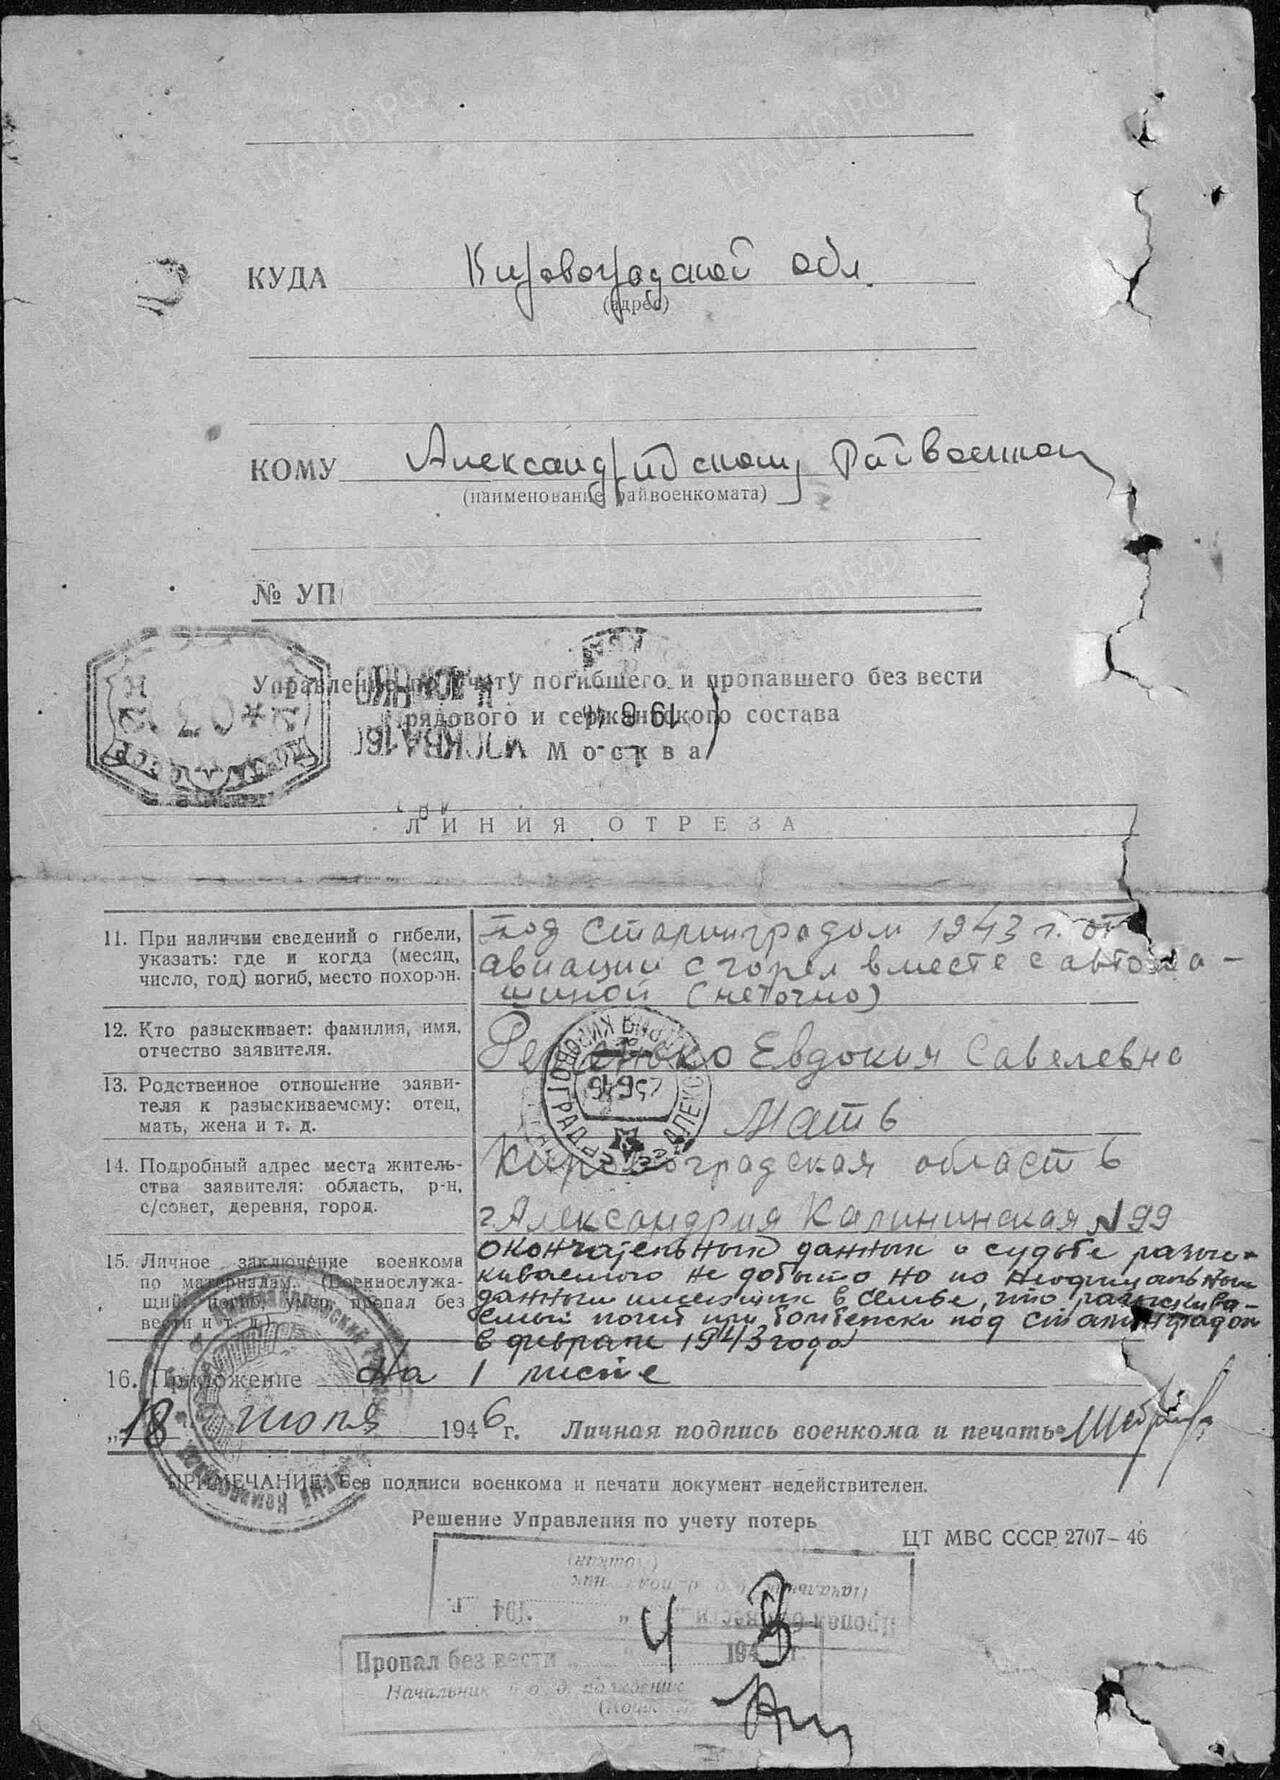 КУДА Кировоградской обл.
(адрес)
КОМУ Александрийскому Райвоенком
(наименование райвоенкомата)
№ УП
Управление по учету погибшего и пропавшего без вести
рядового и сержантского состава
Москва
19 6 46
МОСКВА
ЛИНИЯ ОТРЕЗА
11. При наличии сведений о гибели, указать: где и когда (месяц, число, год) погиб, место похорон.
под Сталинградом 1943 г. от
авиации сгорел вместе с автома-
шиной (неточно)
12. Кто разыскивает: фамилия, имя, отчество заявителя.
Евдокия Савелевна
13. Родственное отношение заявителя к разыскиваемому: отец, мать, жена и т. д.
Мать
14. Подробный адрес места жительства заявителя: область, р-н, с/совет, деревня, город.
Кировоградская область
г. Александрия Калининская N 99
15. Личное заключение военкома по материалам. (Военнослужащий погиб, умер, пропал без вести и т. д.)
окончательных данных о судьбе разыс-
киваемого не добыто но по неофициальным
данным имеющихся в семье, что разыскива-
емый погиб при бомбежки под Сталинградом
в феврале 1943 года
16. Приложение на 1 листе
„18" июля 1946 г. Личная подпись военкома и печать
ПРИМЕЧАНИЕ: Без подписи военкома и печати документ недействителен.
Решение Управления по учету потерь
ЦТ МВС СССР 2707–46
Пропал без вести 194 г.
Пропал без вести „ " 4 1943 г.
Начальник